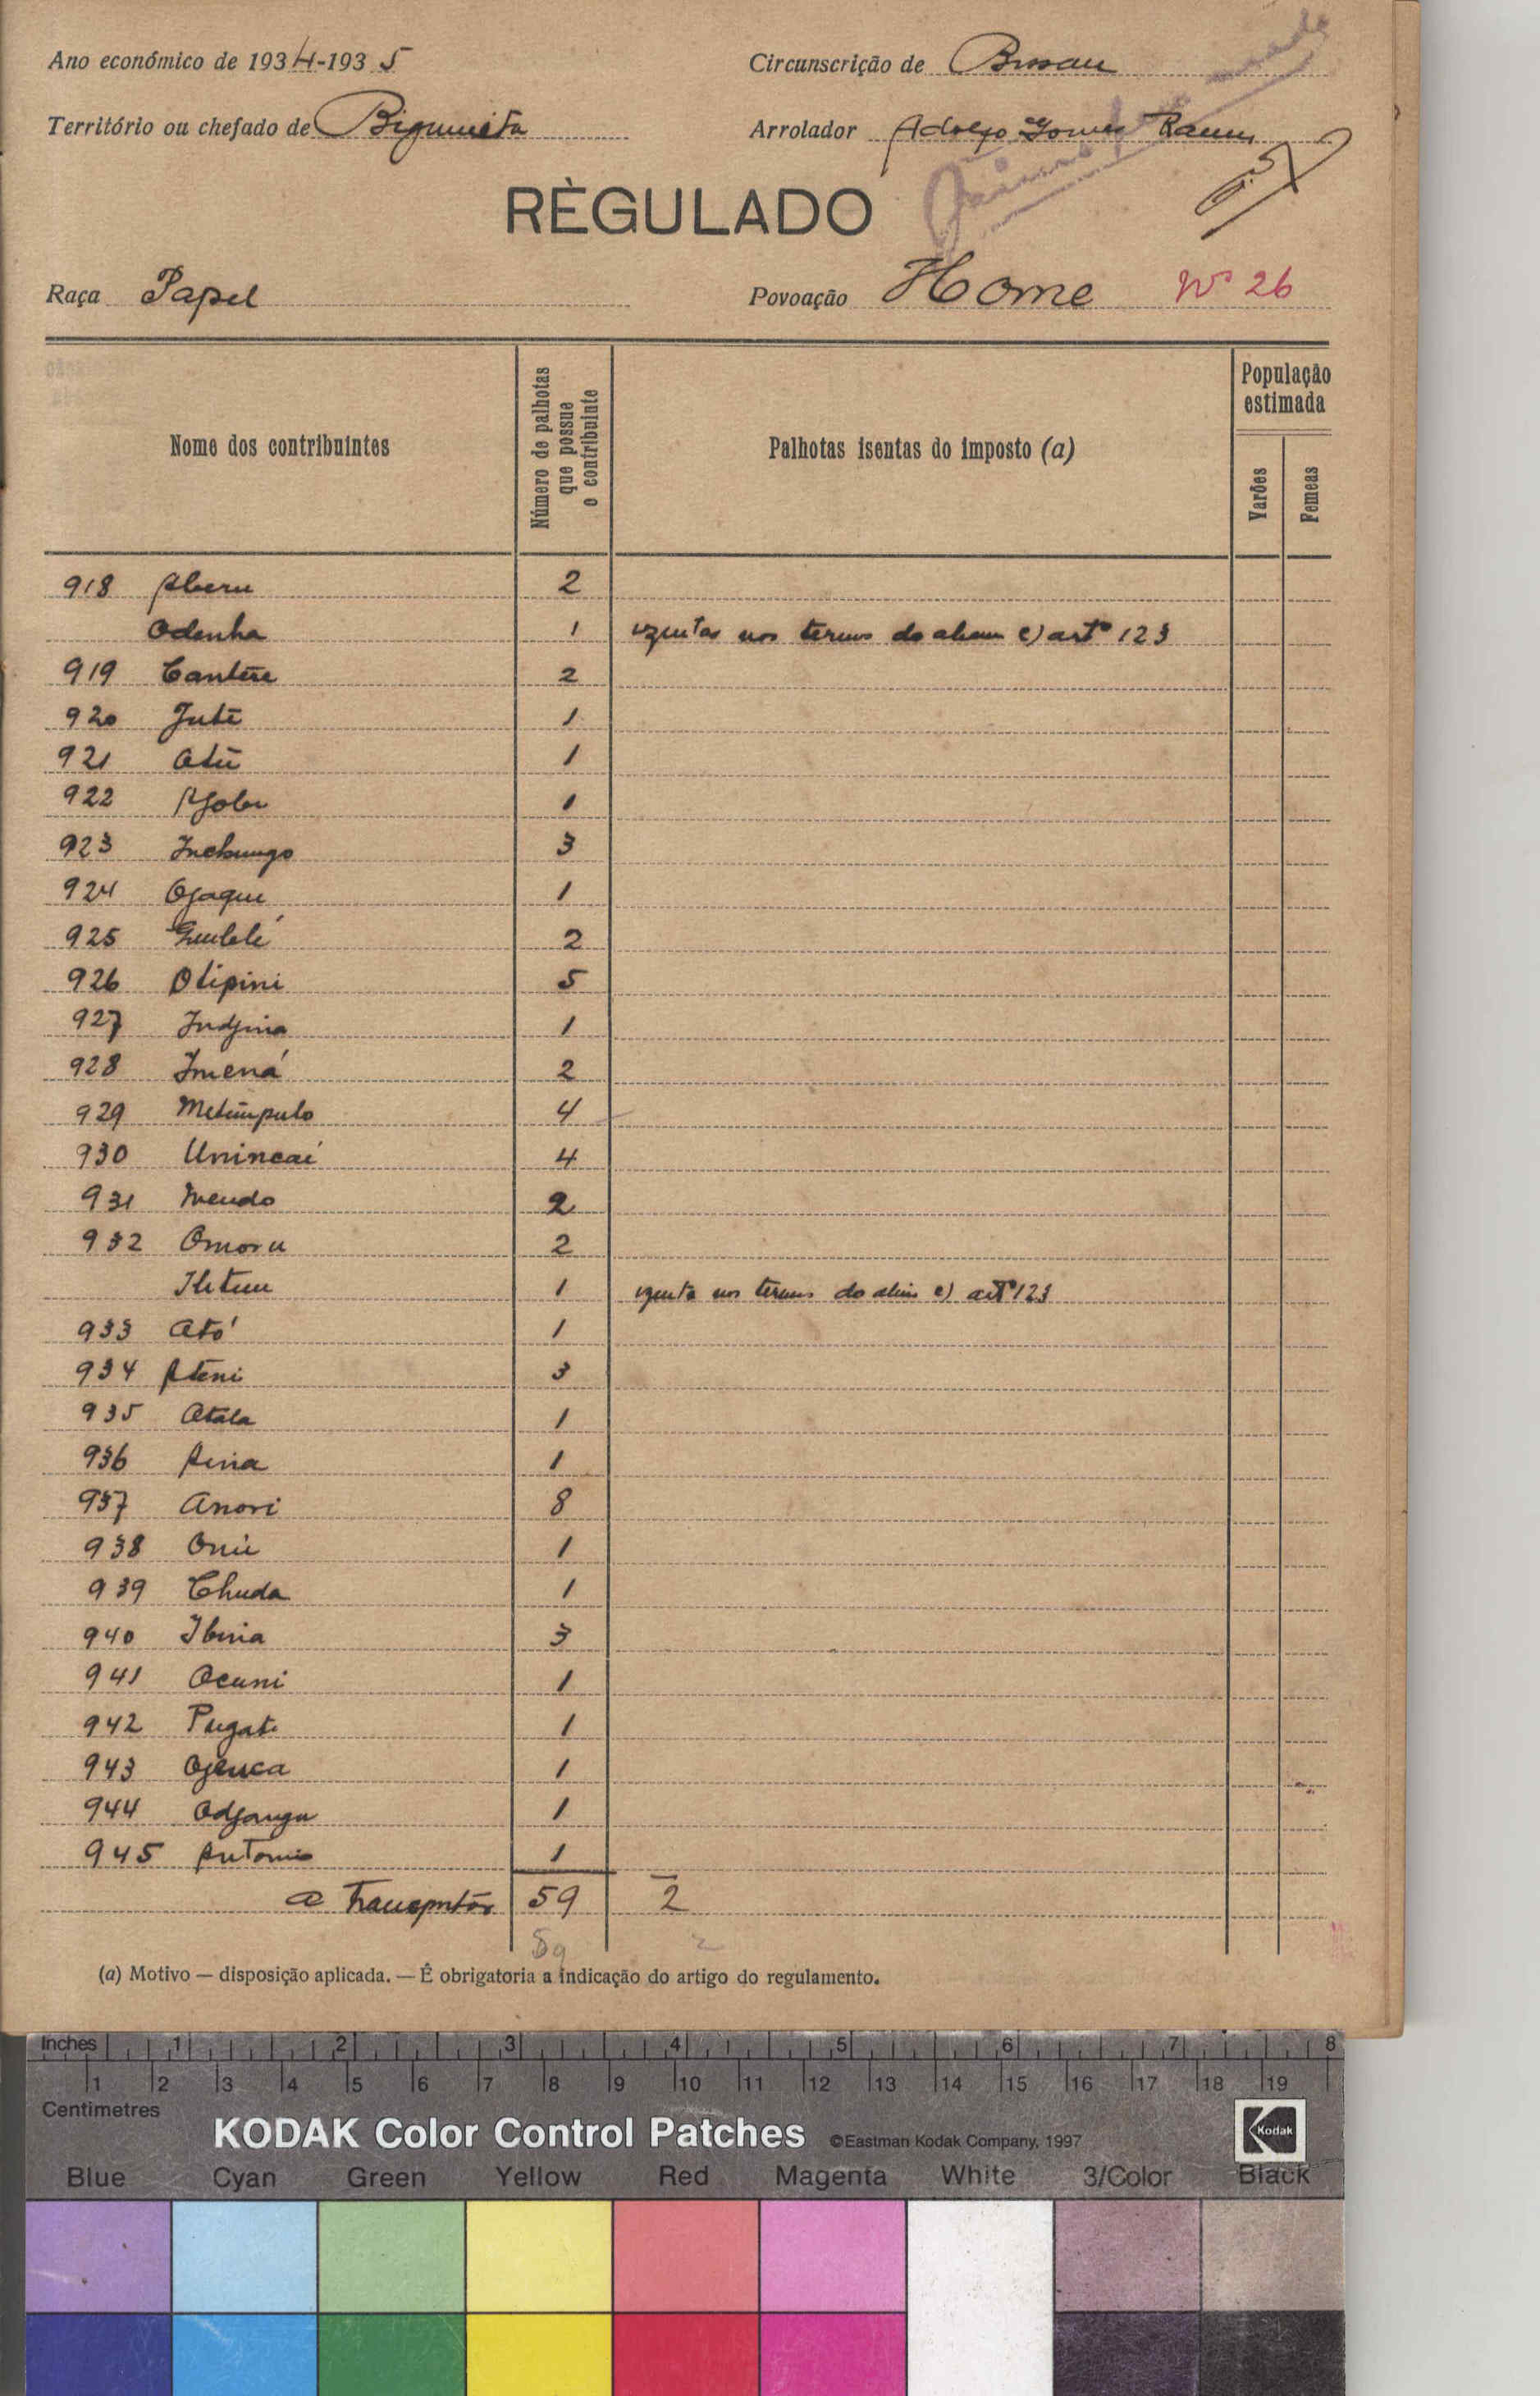 Ano económico de 1934-1935
Circunscrição de Bissau
Território ou chefado de
Arrolador Adolfo Gomes Ramos
RÈGULADO
Raça Papel
Povoação Home Nº 26
Nome dos contribuintes
Número de palhotas que possue o contribuinte
Palhotas isentas do imposto (a)
População estimada
Varões
Femeas
918 Aberu 2
Odenha 1 nos termos da c) artº 123
919 Cantêre 2
920 Jutê 1
921 1
922 1
923 Inchungo 3
924 Ojaque 1
925 2
926 Otipini 5
927 Indjina 1
928 Imená 2
929 Metimpulo 4
930 Unincai 4
931 Mendo 2
932 Omoru 2
1 nos termos da e) artº 123
933 Ató 1
934 Atêni 3
935 Atala 1
936 1
937 Anori 8
938 Oniè 1
939 Chuda 1
940 3
941 Ocuni 1
942 Pugate 1
943 Ojenca 1
944 1
945 Antonio 1
a Transportar 59 2
59 2
(a) Motivo — disposição aplicada. — É obrigatoria a indicação do artigo do regulamento.
Inches 1 2 3 4 5 6 7 8
1 2 3 4 5 6 7 8 9 10 11 12 13 14 15 16 17 18 19
Centimetres
KODAK Color Control Patches ©Eastman Kodak Company, 1997 Kodak
Blue Cyan Green Yellow Red Magenta White 3/Color Black